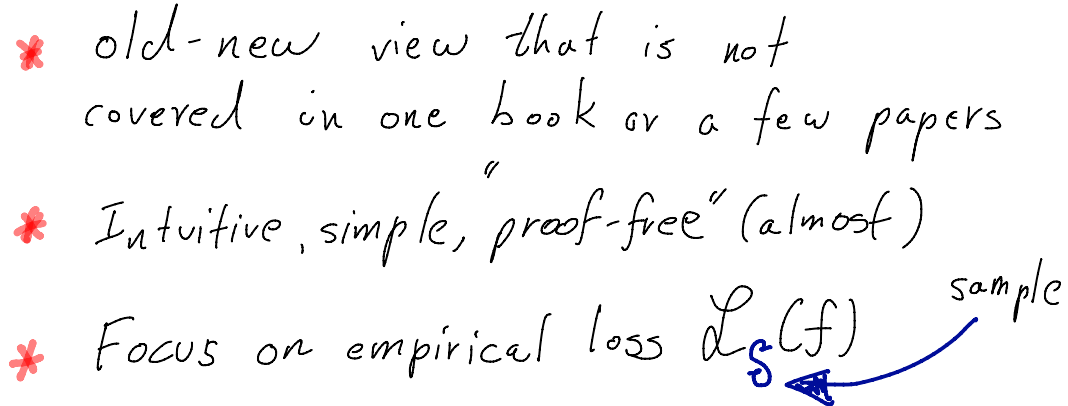 * old-new view that is not
covered in one book or a few papers
* Intuitive, simple, "proof-free" (almost)
sample
* Focus on empirical loss ℒ_S(f)